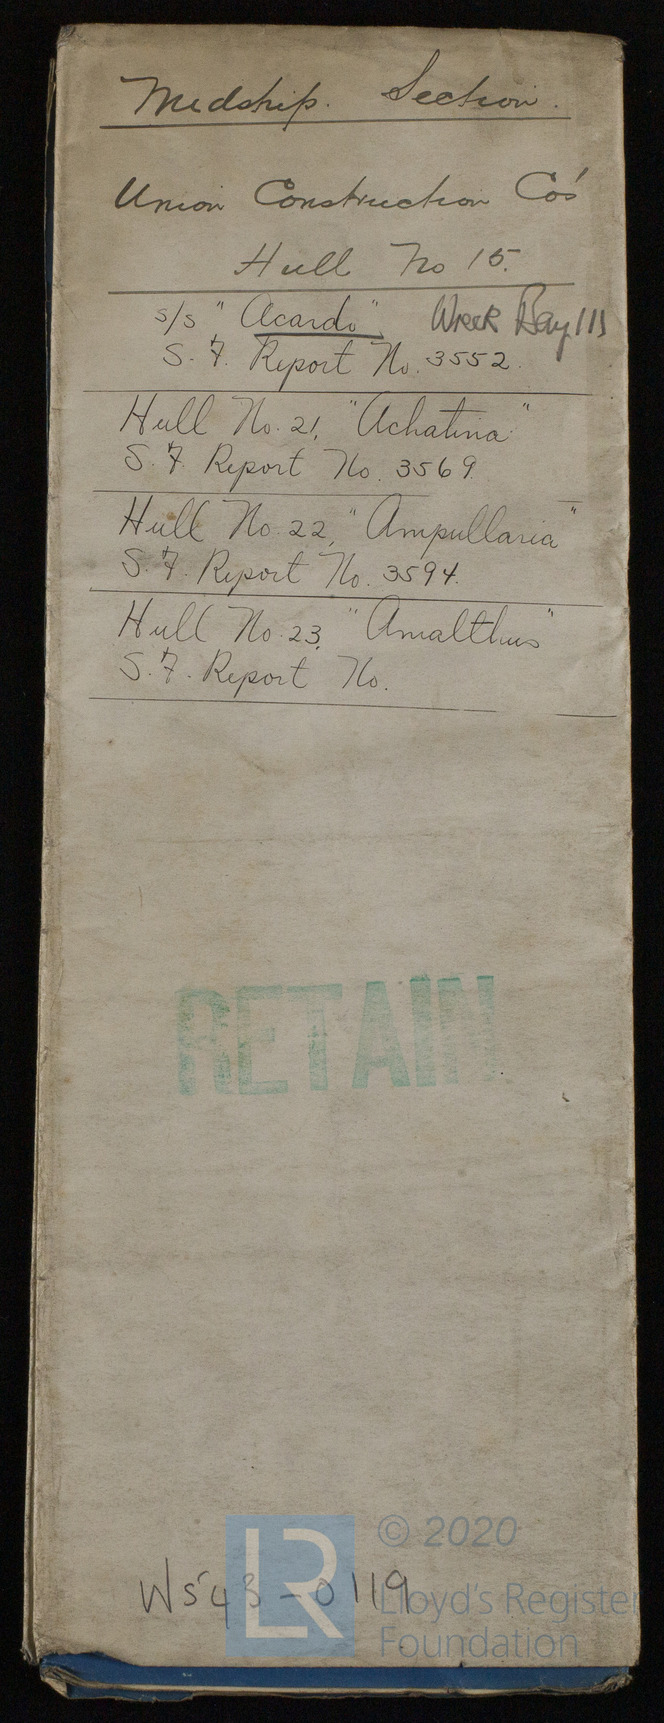 Midship. Section.
Union Construction Co's
Hull No 15.
s/s "Acardo" Wreck Bay 111
S.F. Report No. 3552.
Hull No. 21, "Achatina"
S.F. Report No. 3569
Hull No. 22, "Ampullaria"
S.F. Report No. 3594.
Hull No. 23, "Amalthus"
S.F. Report No.
RETAIN
LR
© 2020
Lloyd's Register
Foundation
W543-0119